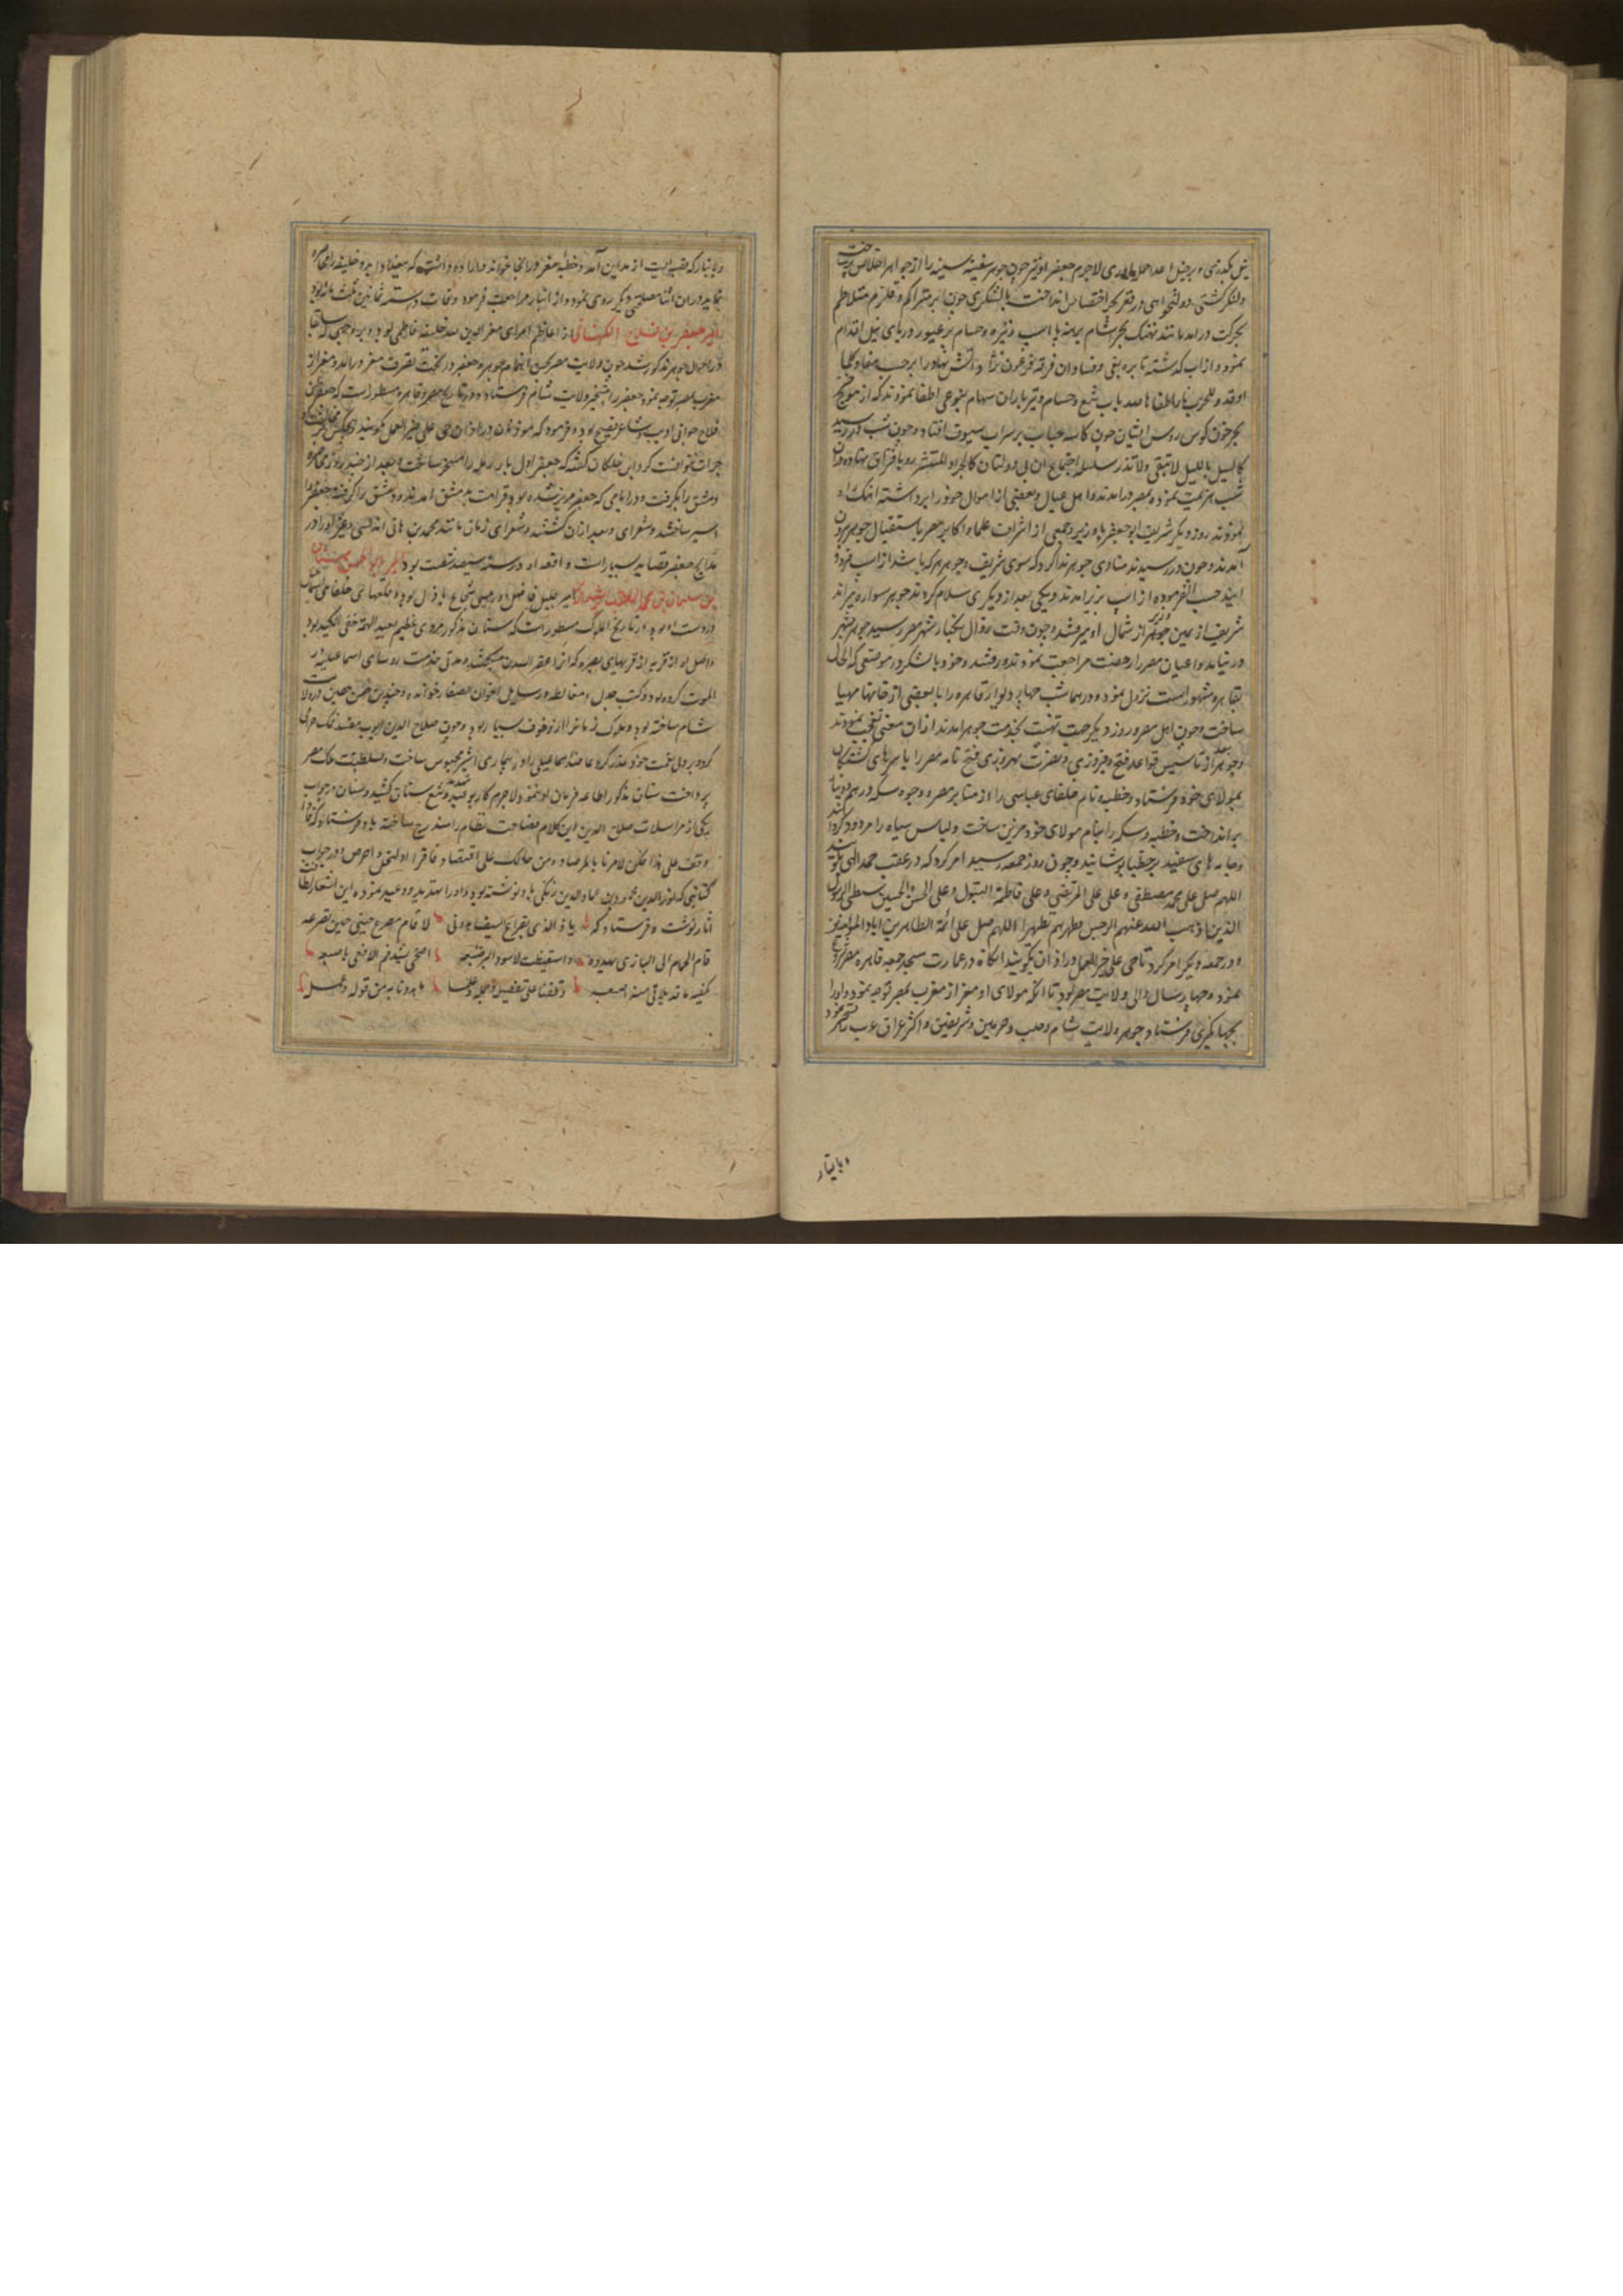 نیل بگذری و بر خیل اعدا حمله‌ای بری لاجرم جعفر او نیز چون جوهر سفینه سینه را از جواهر اخلاص پرساخت
ولنکر کشتی دولتخواهی در قعر بحر اختصاص انداخت با لشکری چون ابر متراکم و قلزم متلاطم
بحرکت درامد مانند نهنک بحر آشام برهنه با اسب و نیزه و حسام بر عبور دریای نیل اقدام
نمود و از اب گذشته نایره بغی و فساد ان فرقه فرعون نژاد آتش نهاد را بر حسب مفاد کلما
اوقدوا للحرب نارا طفاها الله باب تیغ و حسام و تیر باران سهام بنوعی اطفا نمودند که از موج
بحر خون کوس روس ایشان چون کاسه حباب بر سراب سیوف افتاد و چون شب در رسید
کالسیل باللیل لا تبقی ولا تذر سلسله اجتماع ان بی دولتان کالجراد المنتشر رو بافتراق نهاده دران
شب هزیمت نموده بمصر درامدند و اهل عیال و بعضی از اموال خود را برداشته اهنک راه
نمودند روز دیکر شریف ابوجعفر با وزیر و جمعی از اشراف علما و اکابر مصر باستقبال جوهر بیرون
آمدند و چون در رسیدند منادی جوهر ندا کرد که سوی شریف و جوهر هر که باشد از اسب فرود
ایند حسب الفرموده از اسب بزیر امدند و یکی بعد از دیکری سلام کردند جوهر سواره میراند
شریف از یمین و وزیر از شمال او میرفتند و چون وقت زوال بکنار شهر مصر رسید جوهر بشهر
در نیامد و اعیان مصر را رخصت مراجعت نمود تا در رفتند و خود با لشکر در موضعی که الحال
بقاهره مشهور است نزول نمود و در همان شب چهار دیوار قاهره را با بعضی از خانها مهیا
ساخت و چون اهل مصر روز دیکر جهت تهنیت بخدمت جوهر امدند از ان معنی تعجب نمودند
و جوهر بعد از تاسیس قواعد فتح و فیروزی و نصرت بهروزی فتح نامه مصر را با سرهای کشتکان
بمولای خود فرستاد و خطبه و نام خلفای عباسی را از منابر مصر و وجوه سکه درهم و دینار
برانداخت و خطبه و سکه را بنام مولای خود مزین ساخت و لباس سیاه را مردود کردانید
و جامه های سفید بر خطبا پوشانید و چون روز جمعه رسید امر کرد که در عقب حمد الهی کویند
اللهم صل علی محمد مصطفی و علی علی المرتضی و علی فاطمة البتول و علی الحسن والحسین سبطی الرسول
الذین اذهب الله عنهم الرجس و طهرهم تطهیرا اللهم صل علی ائمة الطاهرین اباء المؤمنین
و در جمعه دیکر امر کرد تا حی علی خیر العمل در اذان بکویند انکاه در عمارت مسجد جمعه قاهره مصر شروع
نمود و چهار سال والی ولایت مصر بود تا انکه مولای او معز از مغرب بمصر توجه نمود و او را
بجهانکیری فرستاد و جوهر ولایت شام و حلب و حرمین شریفین و اکثر عراق عرب را مسخر نمود
و بانبار
و بانبار که قصبه ایست از مداین آمد و خطبه معز در انجا خواند و اراده داشت که ببغداد رود و خلیفه را محاصره
نماید در ان اثنا مصلحتی دیکر روی نمود و از انبار مراجعت فرمود وفات او در سنه ثمانین و ثلثمائه بود
امیر جعفر بن فلاح الکتامی از اعاظم امرای معز الدین الله خلیفه فاطمی بود و بر وجهی که سابقا
در احوال جوهر مذکور شد چون ولایت مصر بحسن اهتمام جوهر و جعفر در تحت تصرف معز درامد و معز از
مغرب بمصر توجه نمود جعفر را بتسخیر ولایت شام فرستاد و در تاریخ مصر و قاهره مسطور است که جعفر بن
فلاح جوانی ادیب و شاعر فصیح بود و فرموده که مؤذنان در اذان حی علی خیر العمل بکویند و هیچکس را مخالفت او
جرات نتوانست کرد ابن خلکان گفته که جعفر اول بار رمله را مسخر ساخت و بعد از چند روز محاصره
دمشق را بکرفت و در ایامی که جعفر مریض شده بود قرامطه بدمشق امدند و دمشق را کرفته و جعفر را
اسیر ساختند و بعد از ان کشتند و شعرای زمان مانند محمد بن هانی اندلسی و غیر او را در
مدایح جعفر قصاید بسیار است و واقعه او در سنه ستین و ثلثمائه بود امیر ابو الحسن سنان
بن سلیمان بن محمد الملقب برشید الدین امیر جلیل فاضل و رئیس شجاع باذل بود و قلعهای خلفای اسماعیلیه
در دست او بود در تاریخ الملوک مسطور است که سنان مذکور مردی عظیم بعید الهمة خفی الکید بود
و اصل او از قریه از قریهای بصره که انرا عقر السدن میکفتند و مدتی خدمت روسای اسماعیلیه در
الموت کرده بود و کتب جدل و مغالطه و رسایل اخوان الصفا را خوانده و چندین حصن حصین در ولایت
شام ساخته بود و ملوک زمان را از و خوف بسیار بود و چون صلاح الدین ایوب مفسد نمک حرامی
کرده بر ولی نعمت خود غدر کرد و عاضد اسماعیلی را در بیماری اخیر محبوس ساخت و بسلطنت ملک مصر
پرداخت سنان مذکور اطاعه فرمان او ننمود و لاجرم کار بوعید و تهدید و تیغ و سنان کشید و سنان در جواب
یکی از مراسلات صلاح الدین این کلام فصاحت نظام را مندرج ساخته باو فرستاد که فاذا
وقفت علی هذا فکن لامرنا بالمرصاد و من حالک علی اقتصاد فاقرا اول النحل و اخر ص و در جواب
کتابتی که نور الدین محمود بن عماد الدین زنکی باو نوشته بود و او را تهدید و وعید نموده این اشعار بلاغت
آثار نوشت و فرستاد که یا ذا الذی بقراع السیف هددنی لا قام مصرع جنبی حین تصرعه
قام الحمام الی البازی یهدده و استیقظت لاسود البر ضبعه اضحی یسد فم الافعی باصبعه
یکفیه ما قد یلاقی منه اصبعه وقفنا علی تفصیله و جمله و علمنا ما هددنا به من قوله و عمله